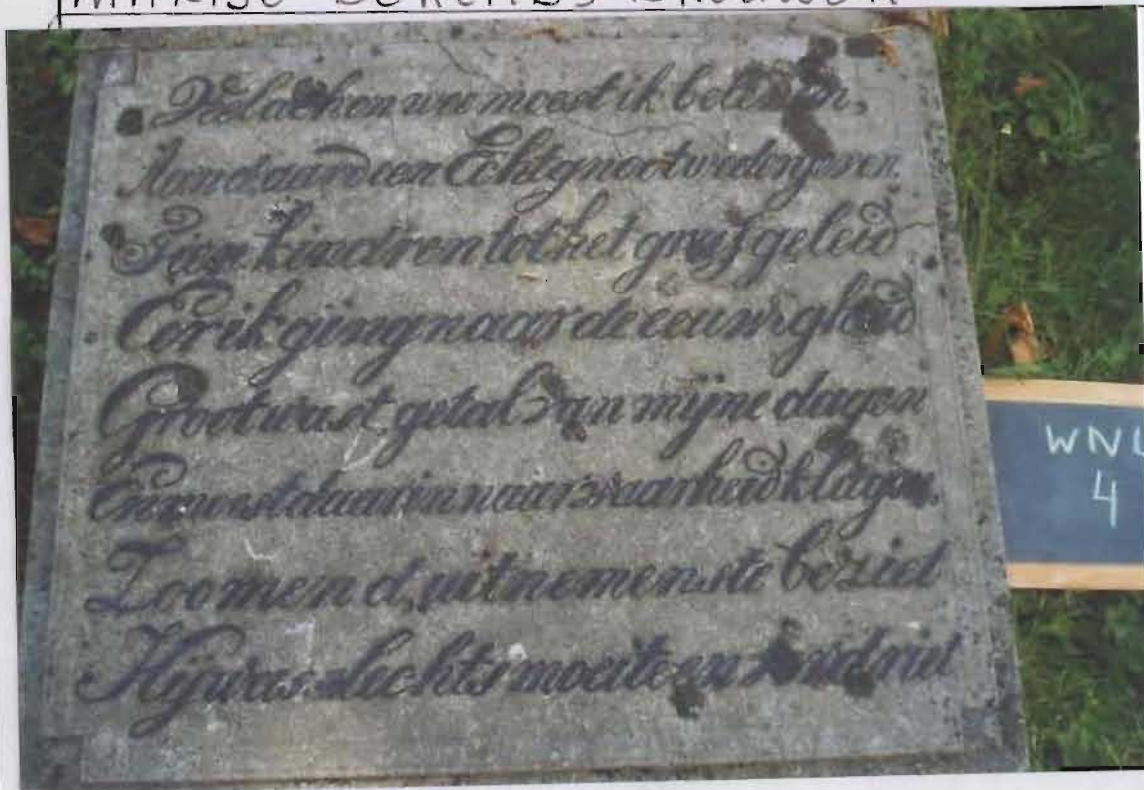 BERENDS
Veel ach en wee moest ik beleven,
Aan d aard een Echtgnoot wedergeven.
kindren tot het graf geleid
Eer ik ging naar de eeuwigheid
Groot was't getal van mijne dagen
En moest daarin naar waarheid klagen,
Zoo men d,uitnemenste beziet
Hij was slechts moeite en verdriet
WNL
4